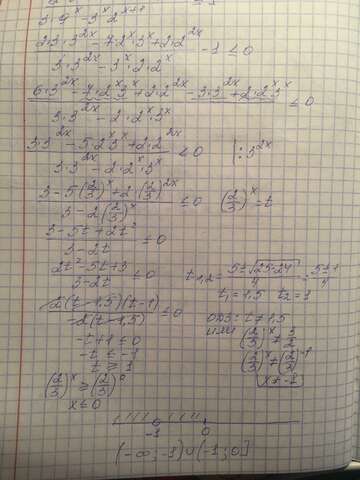 3·9^x - 3^x 2^(x+1)
2·3·3^(2x) - 7·2^x·3^x + 2·2^(2x) / 3·3^(2x) - 3^x·2·2^x - 1 ≤ 0
6·3^(2x) - 7·2^x 3^x + 2·2^(2x) - 3·3^(2x) + 2·2^x 3^x / 3·3^(2x) - 2·2^x·3^x ≤ 0
3·3^(2x) - 5·2^x 3^x + 2·2^(2x) / 3·3^(2x) - 2·2^x·3^x ≤ 0 | : 3^(2x)
3 - 5(2/3)^x + 2·(2/3)^(2x) / 3 - 2(2/3)^x ≤ 0 (2/3)^x = t
3 - 5t + 2t² / 3 - 2t ≤ 0
2t² - 5t + 3 / 3 - 2t ≤ 0 t1,2 = 5±√25-24 / 4 = 5±1 / 4
t1 = 1,5 t2 = 1
2(t-1,5)(t-1) / -2(t-1,5) ≤ 0 ОДЗ: t ≠ 1,5
или (2/3)^x ≠ 3/2
-t+1 ≤ 0
-t ≤ -1 (2/3)^x ≠ (2/3)^(-1)
t ≥ 1 x ≠ -1
(2/3)^x ≥ (2/3)^0
x ≤ 0
-1 0
(-∞; -1) ∪ (-1; 0]